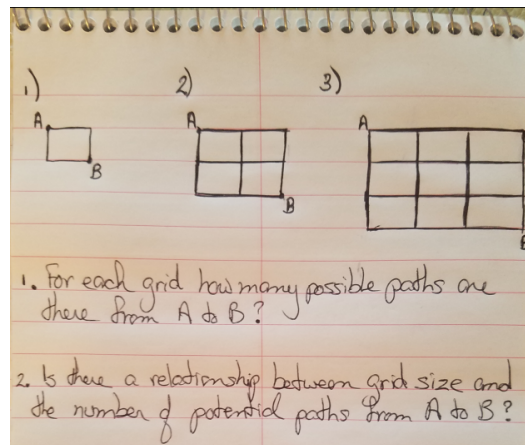 1) 2) 3)
A A A
B B B
1. For each grid how many possible paths are
there from A to B?
2. Is there a relationship between grid size and
the number of potential paths from A to B?